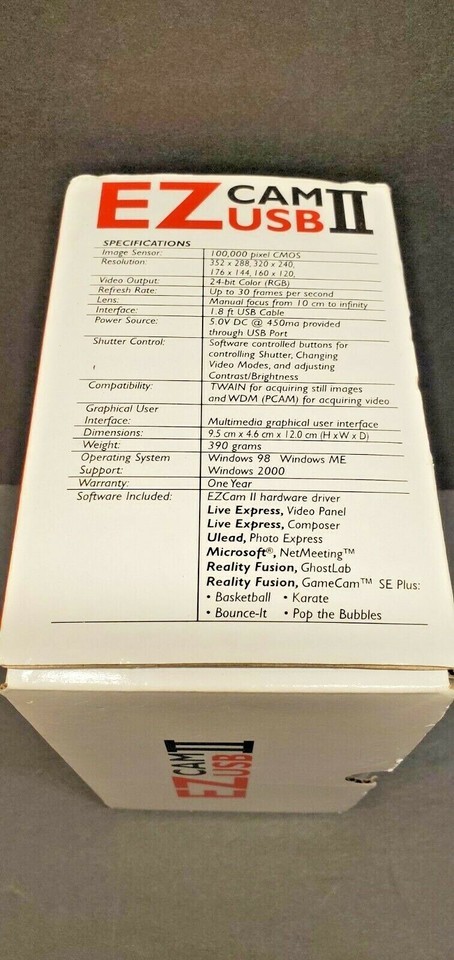 EZ CAM II
USB
SPECIFICATIONS
Image Sensor: 100,000 pixel CMOS
Resolution 352 x 288, 320 x 240,
176 x 144, 160 x 120,
Video Output: 24-bit Color (RGB)
Refresh Rate: Up to 30 frames per second
Lens: Manual focus from 10 cm to infinity
Interface: 1.8 ft USB Cable
Power Source: 5.0V DC @ 450ma provided
through USB Port
Shutter Control: Software controlled buttons for
controlling Shutter, Changing
Video Modes, and adjusting
Contrast/Brightness
Compatibility: TWAIN for acquiring still images
and WDM (PCAM) for acquiring video
Graphical User
Interface: Multimedia graphical user interface
Dimensions: 9.5 cm x 4.6 cm x 12.0 cm (H x W x D)
Weight: 390 grams
Operating System Windows 98 Windows ME
Support: Windows 2000
Warranty: One Year
Software Included: EZCam II hardware driver
Live Express, Video Panel
Live Express, Composer
Ulead, Photo Express
Microsoft®, NetMeeting™
Reality Fusion, GhostLab
Reality Fusion, GameCam™ SE Plus:
• Basketball • Karate
• Bounce-It • Pop the Bubbles
EZ CAM II
USB